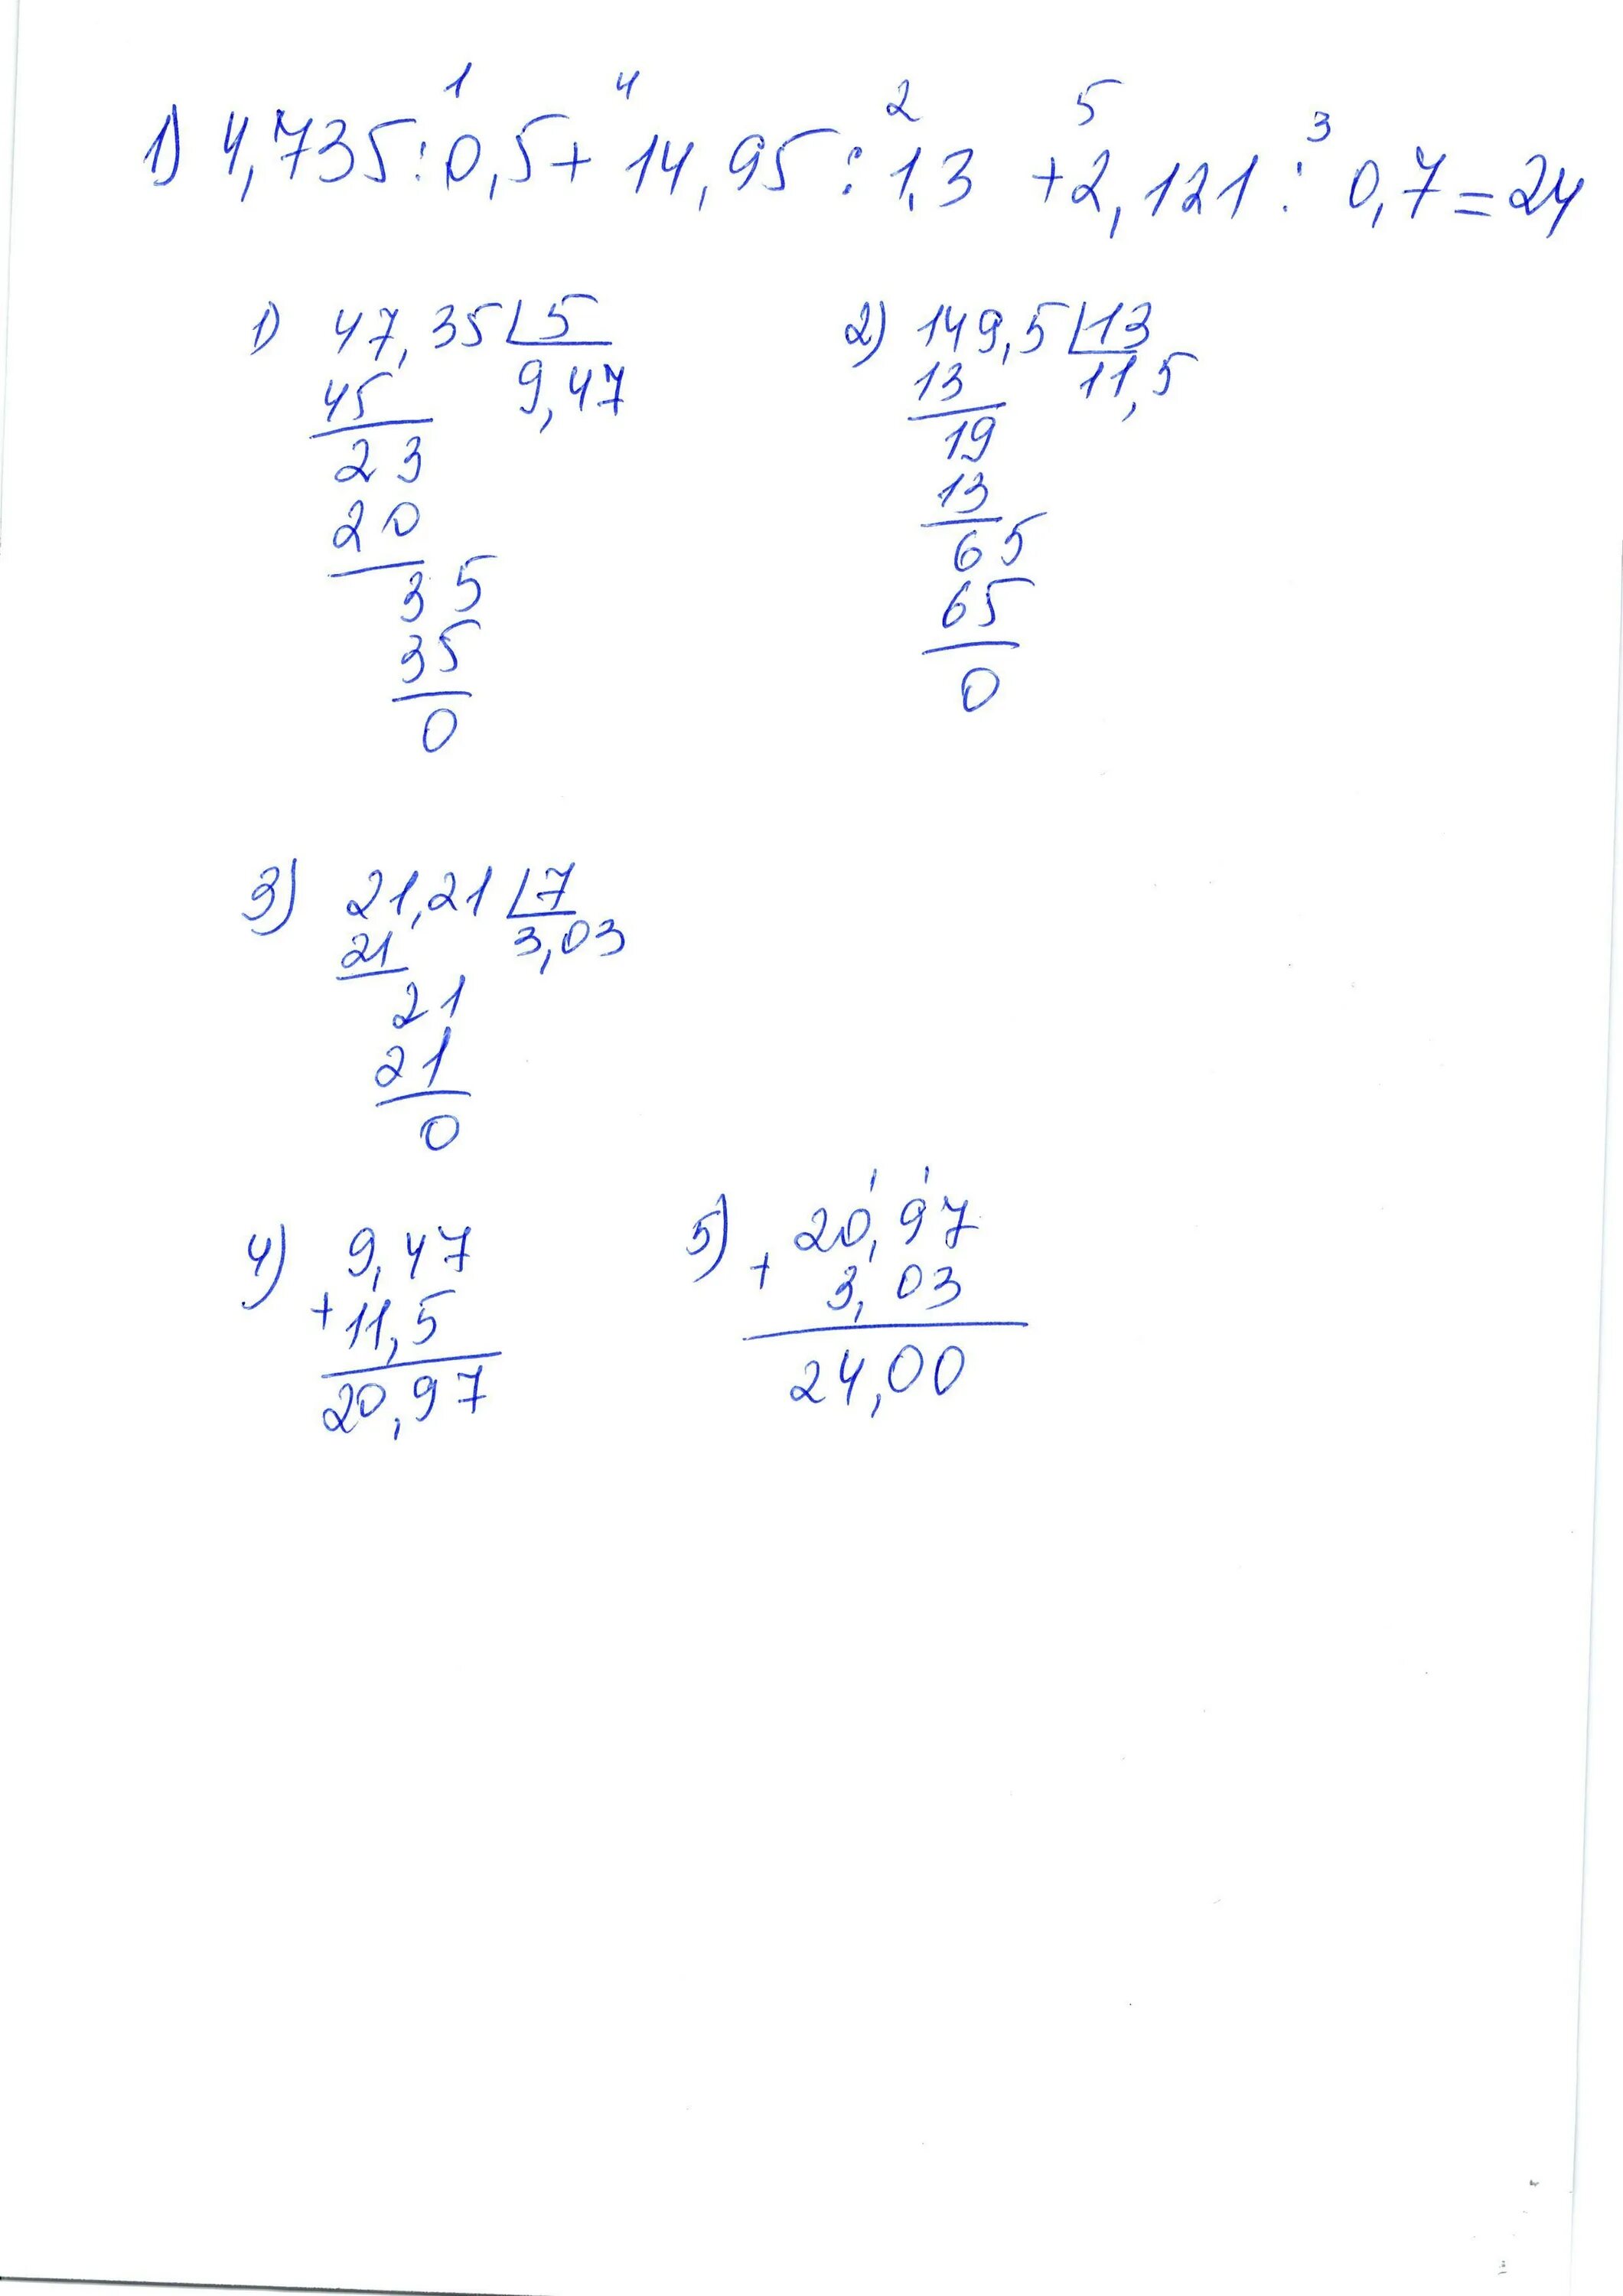 1 4 2 5 3
1) 4,735:0,5+ 14,95 : 1,3 +2,121 : 0,7=24
1) 47,35 5
45 9,47
23
20
35
35
0
2) 149,5 13
13 11,5
19
13
65
65
0
3) 21,21 7
21 3,03
21
21
0
4) 9,47
+ 11,5
20,97
1 1
5) 20,97
+ 3,03
24,00